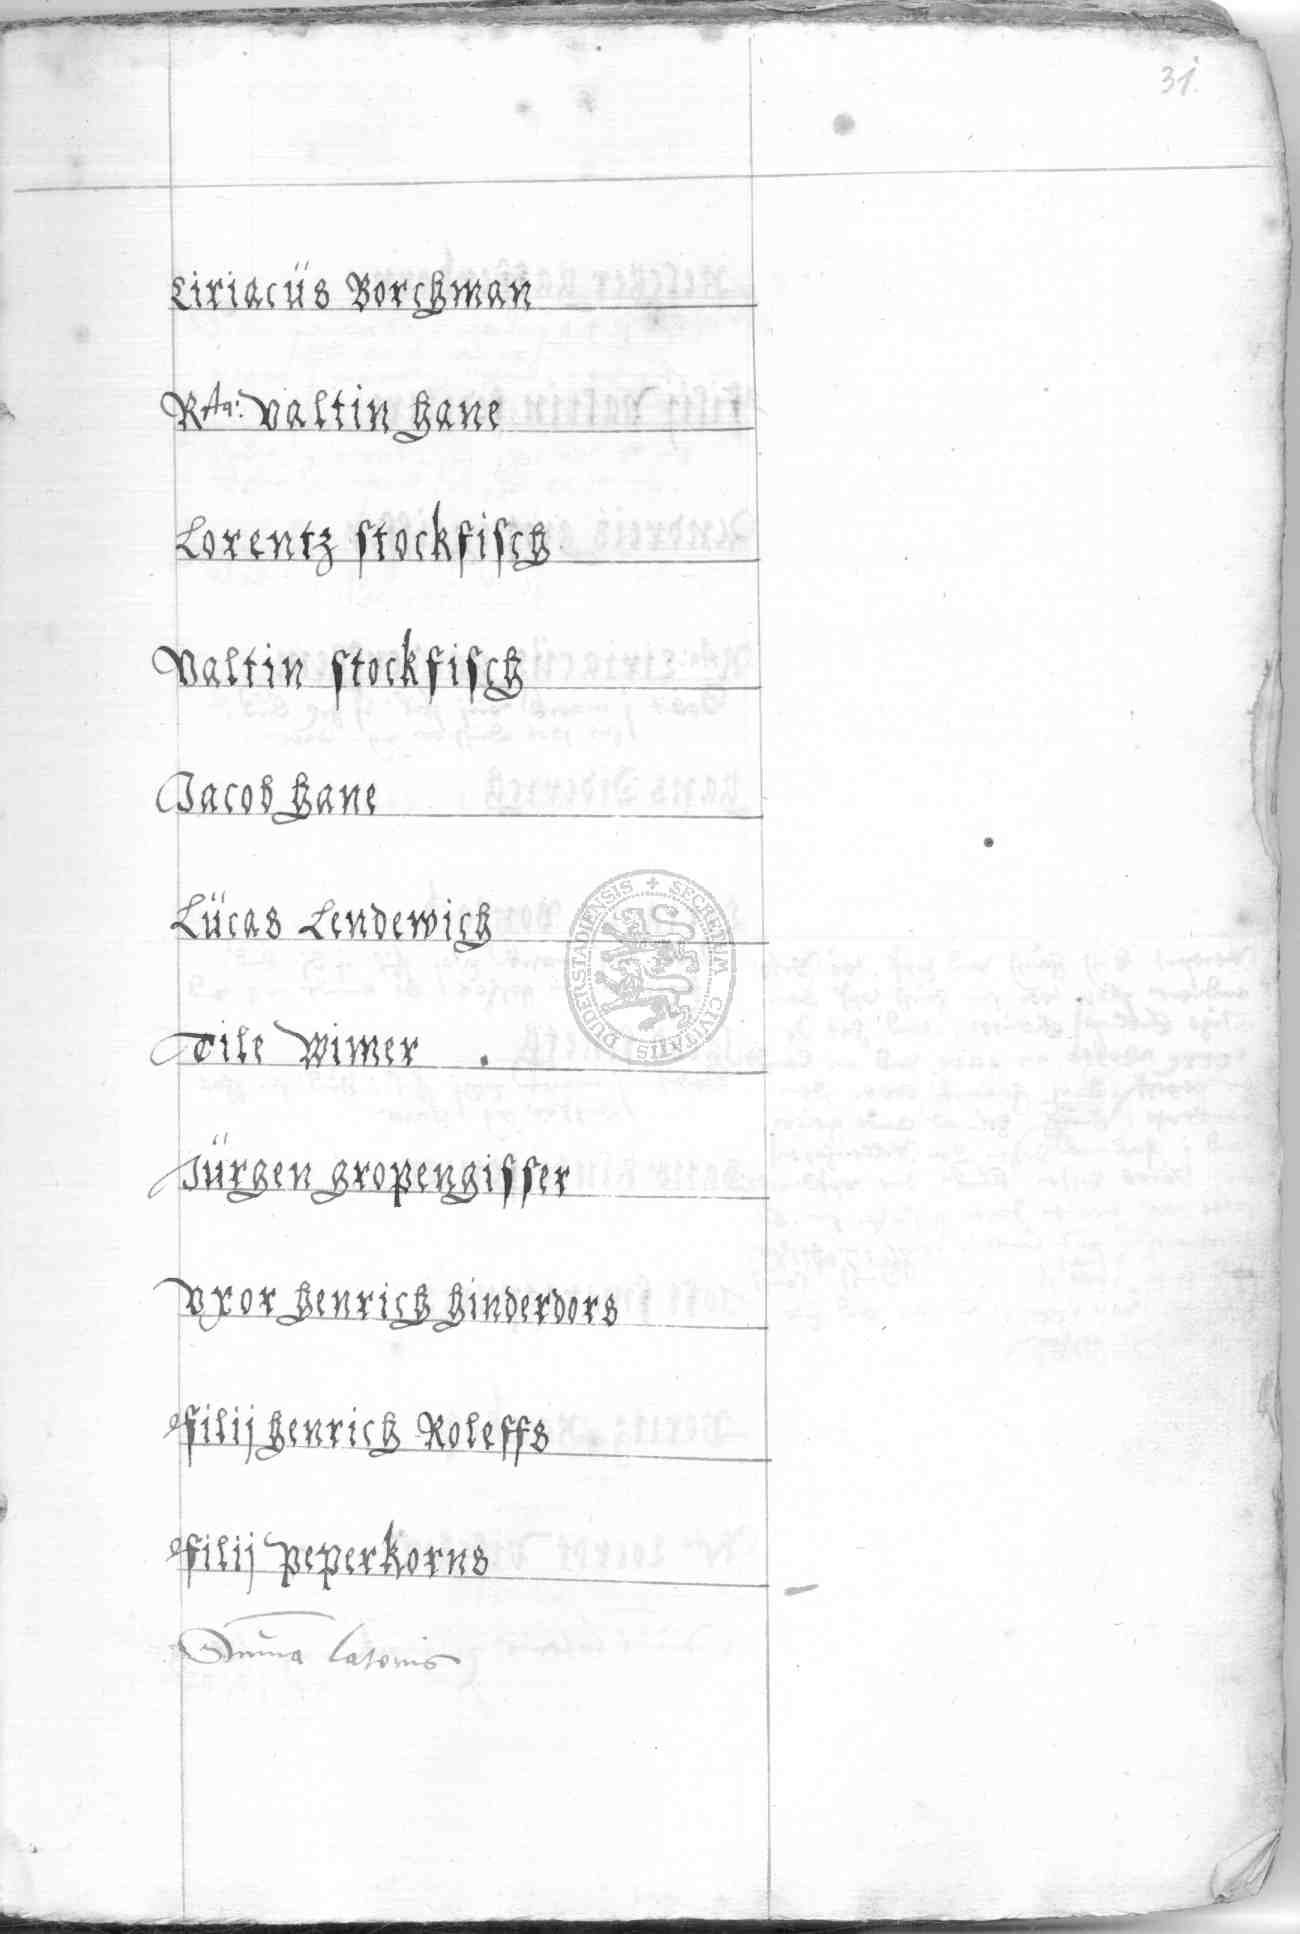 31.
Ciriacüs Borchman
Rta: Valtin Hane
Lorentz Stockfisch
Valtin Stockfisch
Jacob Hane
Lücas Lendewich
Tile Wimer
Jürgen Gropengisser
Vxor Henrich Hinderdors
Filij Henrich Roleffs
Filij Peperkorns
Sūma Lateris
SECRETUM CIVITATIS DUDERSTADIENSIS